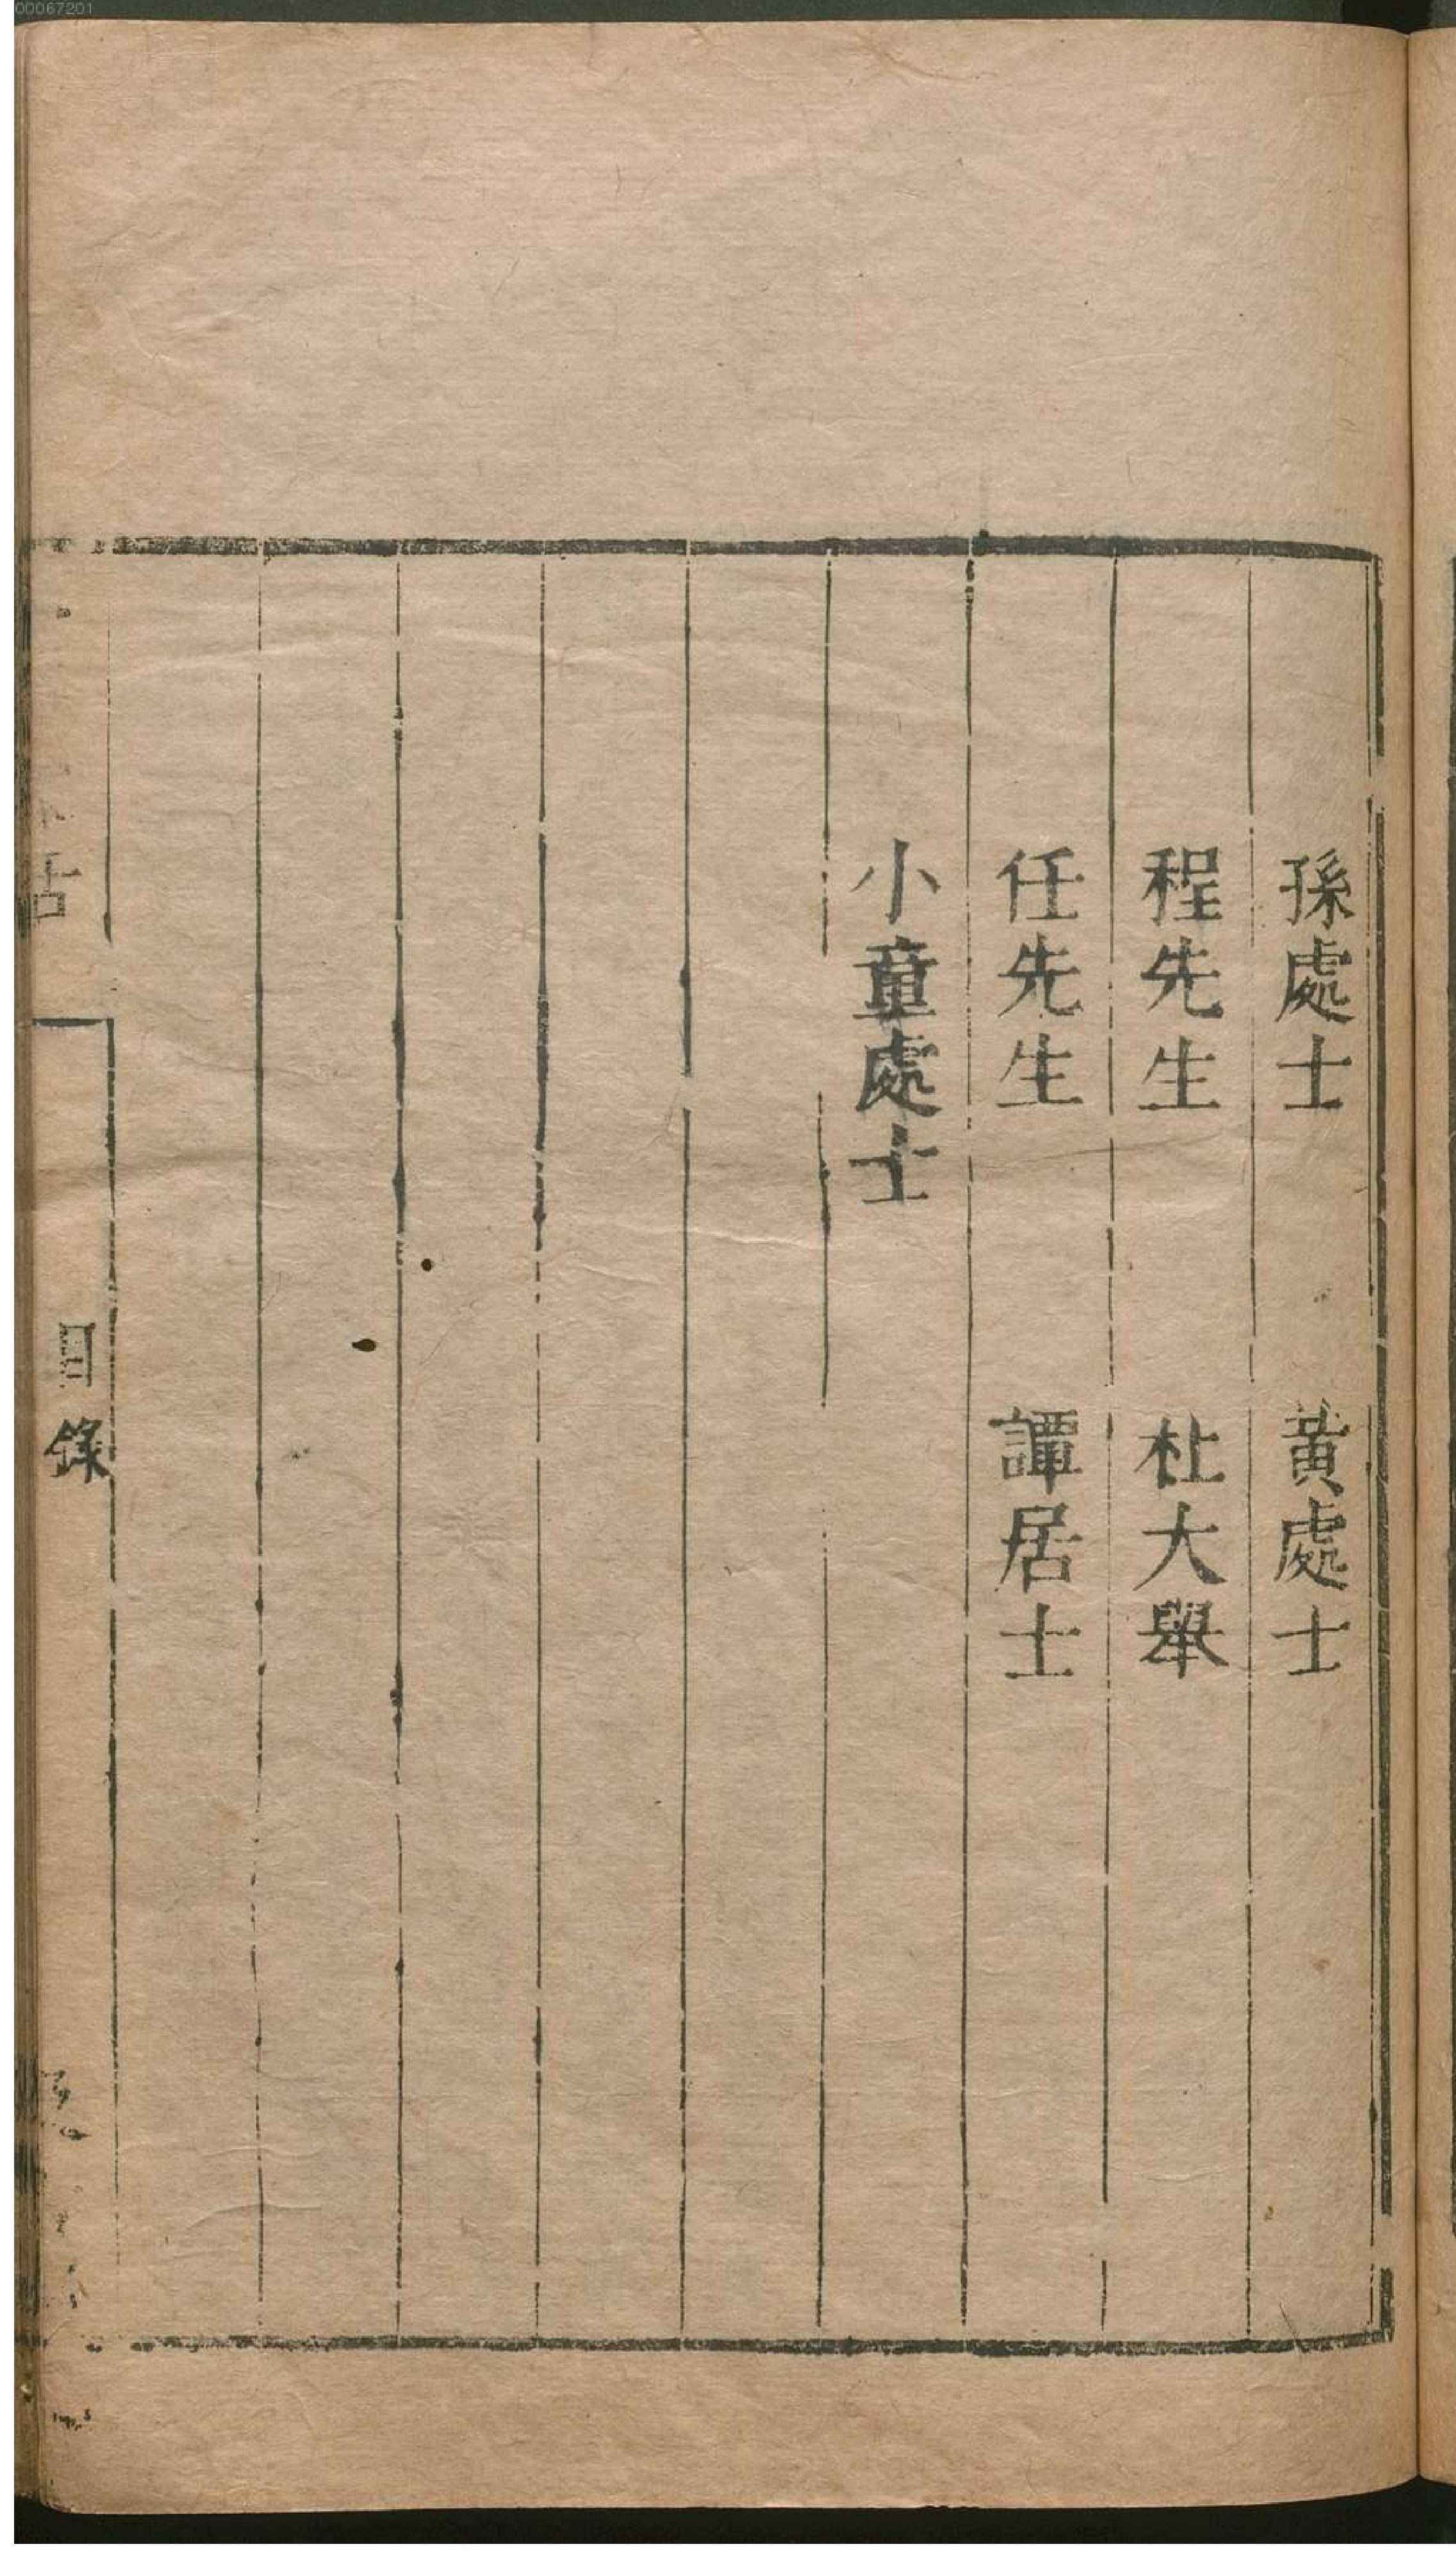 00067201
孫處士　黃處士
程先生　杜大舉
任先生　譚居士
小童處士
目錄